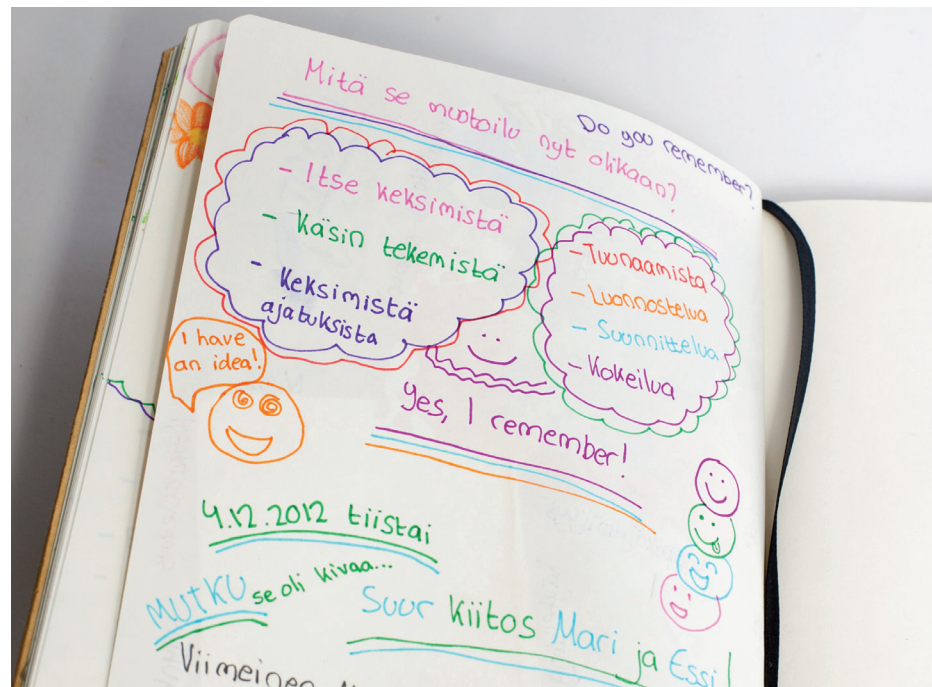 Mitä se muotoilu nyt olikaan?
Do you remember?
- Itse keksimistä
- Käsin tekemistä
- Keksimistä
ajatuksista
- Tuunaamista
- Luonnostelua
- Suunnittelua
- Kokeilua
I have
an idea!
Yes, I remember!
4.12.2012 tiistai
MUTKU se oli kivaa...
Suur kiitos Mari ja Essi!
Viimeinen